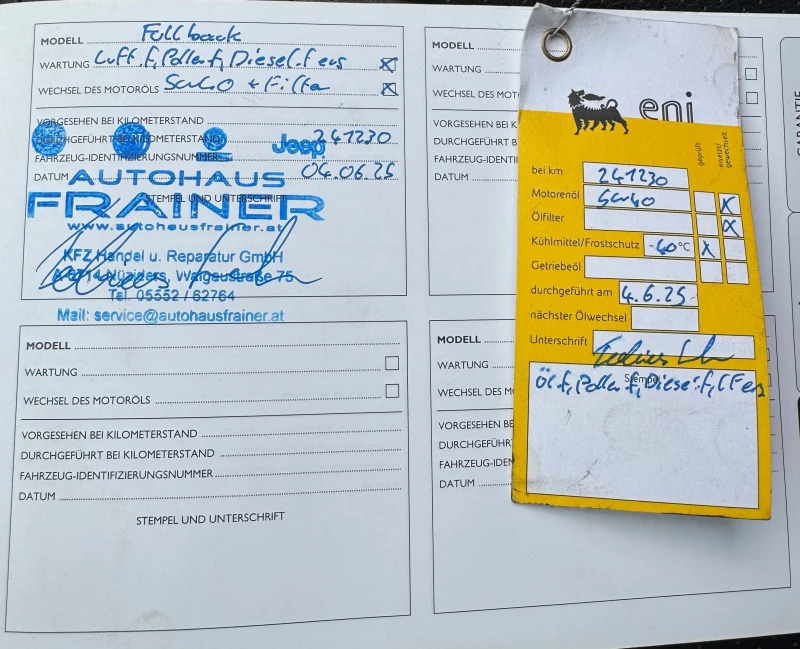 MODELL Fullback
WARTUNG Luft.f, Pollen f, Diesel.f ers
WECHSEL DES MOTORÖLS 5w40 + Filter
VORGESEHEN BEI KILOMETERSTAND
DURCHGEFÜHRT BEI KILOMETERSTAND 241230
Jeep
FAHRZEUG-IDENTIFIZIERUNGSNUMMER
DATUM 04.06.25
AUTOHAUS
STEMPEL UND UNTERSCHRIFT
FRAINER
www.autohausfrainer.at
KFZ Handel u. Reparatur GmbH
A-6714 Nüziders, Walgaustraße 75
Tel. 05552 / 62764
Mail: service@autohausfrainer.at
MODELL
WARTUNG
WECHSEL DES MOTORÖLS
VORGESEHEN BEI KILOMETERSTAND
DURCHGEFÜHRT BEI KILOMETERSTAND
FAHRZEUG-IDENTIFIZIERUNGSNUMMER
DATUM
STEMPEL UND UNTERSCHRIFT
MODELL
WARTUNG
WECHSEL DES MO
VORGESEHEN BEI K
DURCHGEFÜHRT B
FAHRZEUG-IDENTI
DATUM
MODELL
WARTUNG
WECHSEL DES M
VORGESEHEN B
DURCHGEFÜHR
FAHRZEUG-IDEN
DATUM
eni
geprüft
ersetzt/
gewechselt
bei km 241230
Motorenöl 5w40 x
Ölfilter x
Kühlmittel/Frostschutz -40 °C x
Getriebeöl
durchgeführt am 4.6.25
nächster Ölwechsel
Unterschrift
Stempel
Öl.f, Pollen f, Diesel.f, Lf ers
GARANTIE